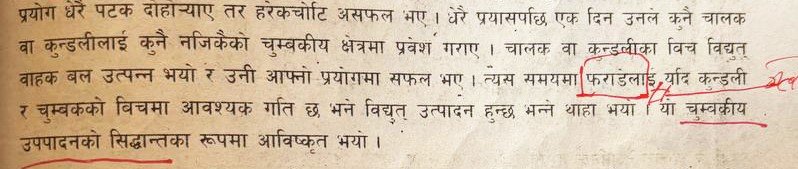 प्रयोग धेरै पटक दोहोऱ्याए तर हरेकचोटि असफल भए । धेरै प्रयासपछि एक दिन उनले कुनै चालक
वा कुन्डलीलाई कुनै नजिकैको चुम्बकीय क्षेत्रमा प्रवेश गराए । चालक वा कुन्डलीका विच विद्युत्
वाहक बल उत्पन्न भयो र उनी आफ्नो प्रयोगमा सफल भए । त्यस समयमा फराडेलाई यदि कुन्डली
र चुम्बकको विचमा आवश्यक गति छ भने विद्युत् उत्पादन हुन्छ भन्ने थाहा भयो । यो चुम्वकीय
उपपादनको सिद्धान्तका रूपमा आविष्कृत भयो ।